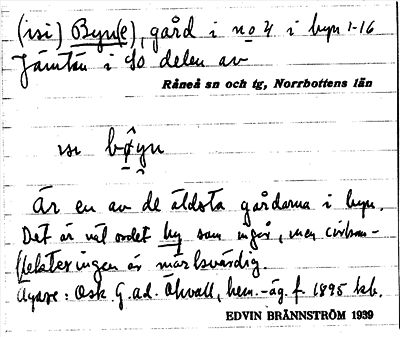 (isi) Byn(e), gård i no 4 i byn 1-16
Jämtön i so delen av
Råneå sn och tg, Norrbottens län
isi bøyn
Är en av de äldsta gårdarna i byn.
Det är väl ordet by som ingår, men cirkum-
flekteringen är märkvärdig.
Ägare: Osk. G. ad. Öhvall, hem.-äg. f. 1895 kb.
EDVIN BRÄNNSTRÖM 1939